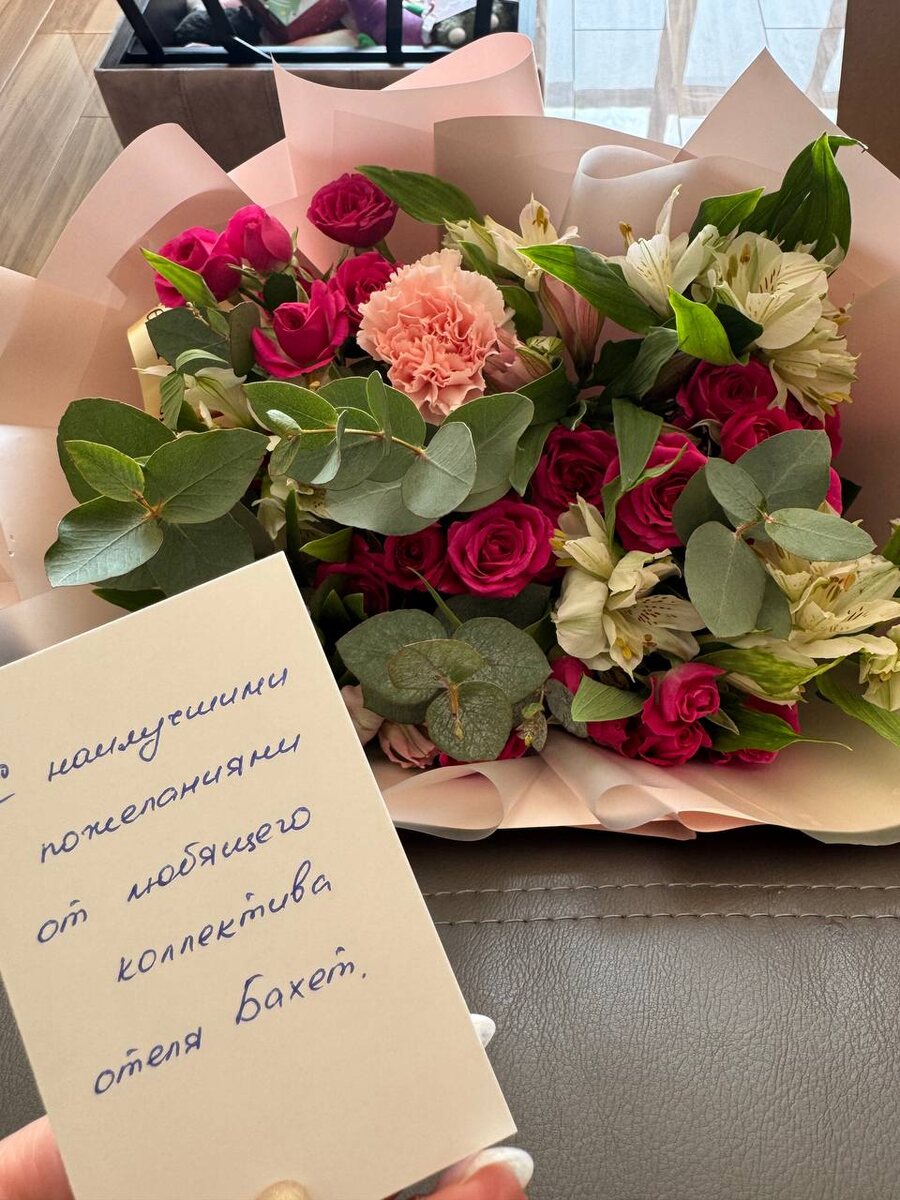 С наилучшими
пожеланиями
от любящего
коллектива
отеля Бахет.